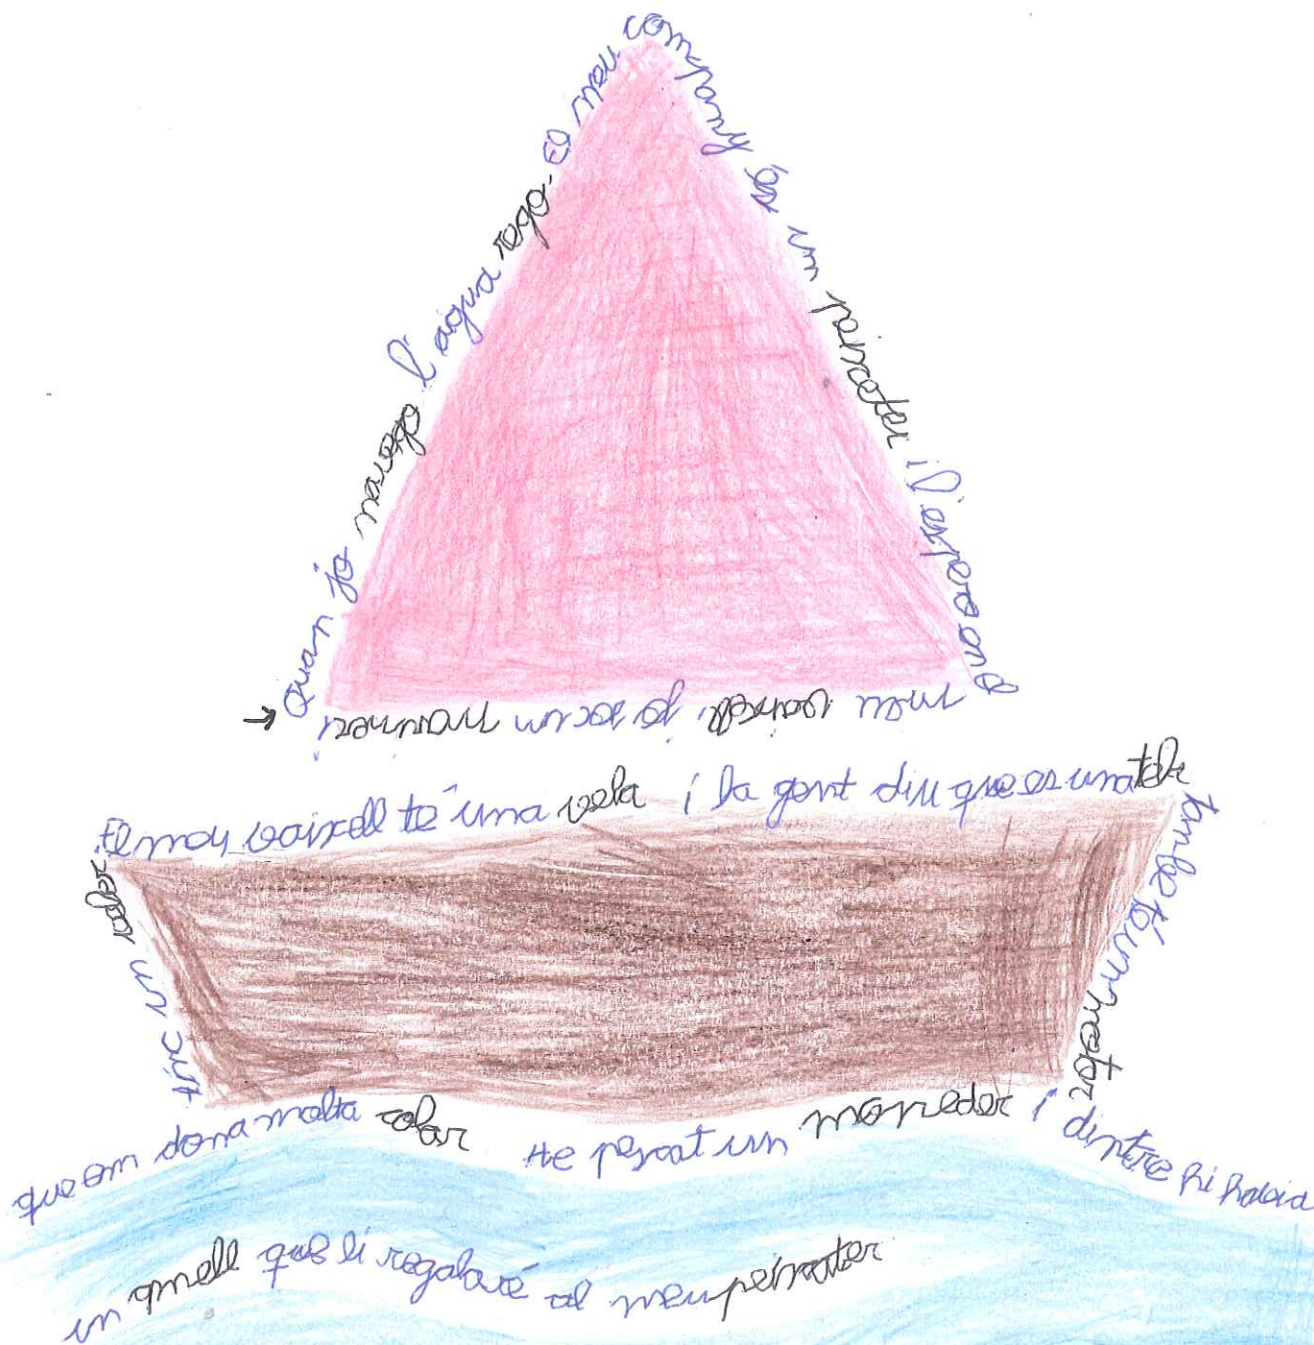 Quan jo navego l'aigua rego. El meu
company és un i l'espero
meu vaixell, jo soc un mariner i
El meu vaixell té una vela i la gent diu que es una tela
també té un
tinc un
que em dona molta calor He pescat un moneder i dintre hi havia
un anell que li regalaré al meu peixater